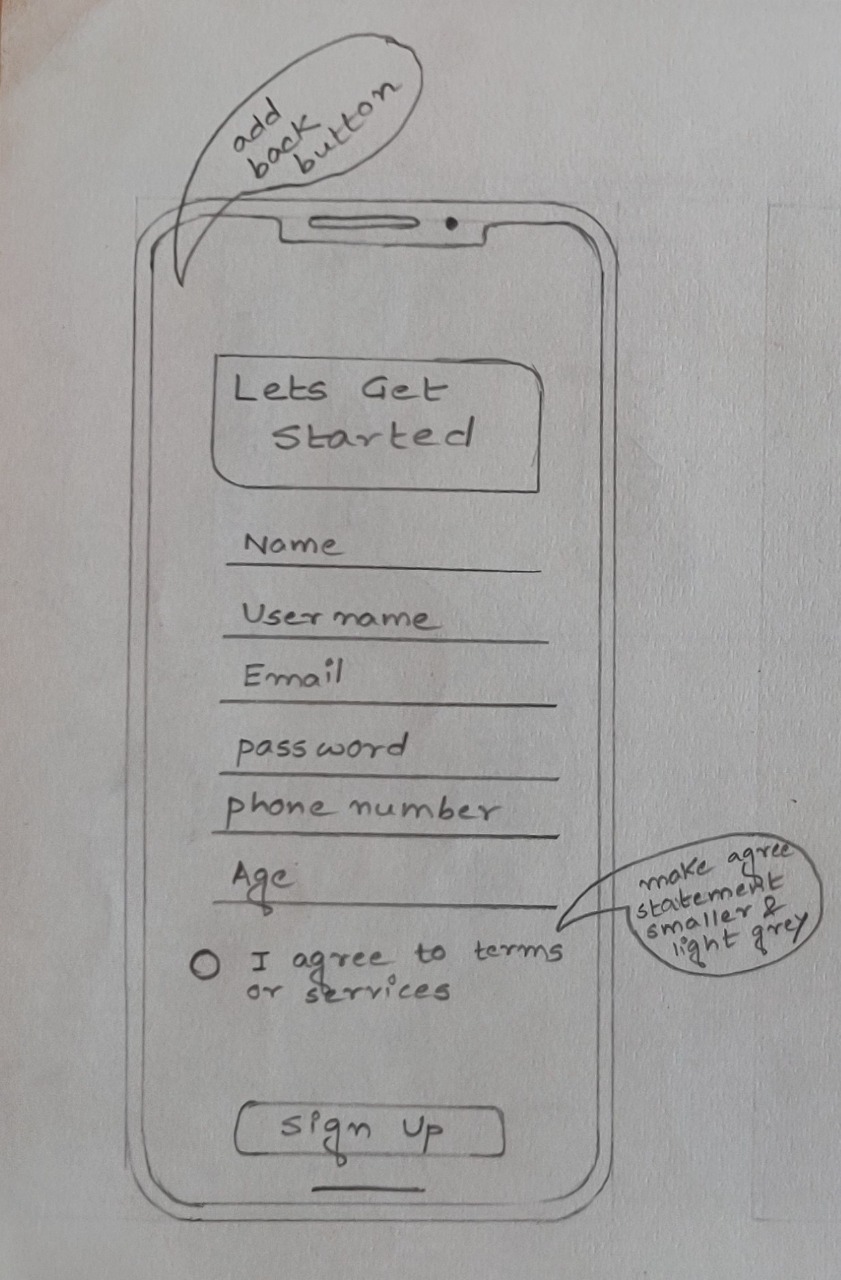 add
back
button
Lets Get
Started
Name
User name
Email
password
phone number
Age
make agree
statement
smaller &
light grey
I agree to terms
or services
Sign Up